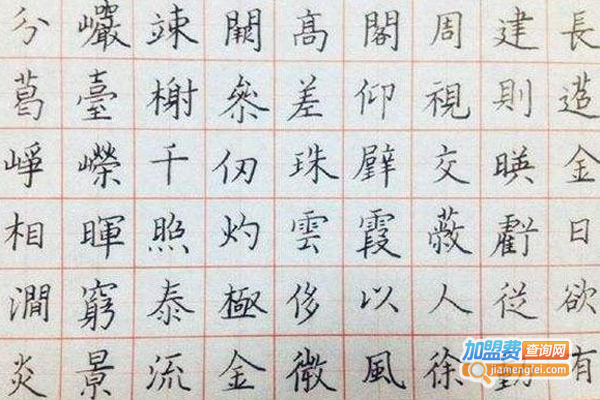 分巗竦闕高閣周建長
葛臺榭參差仰視則迢
崢嶸千仞珠璧交暎金
相暉照灼雲霞蔽虧日
澗窮泰極侈以人從欲
炎景流金微風徐動有
加盟费查询网
jiamengfei.com